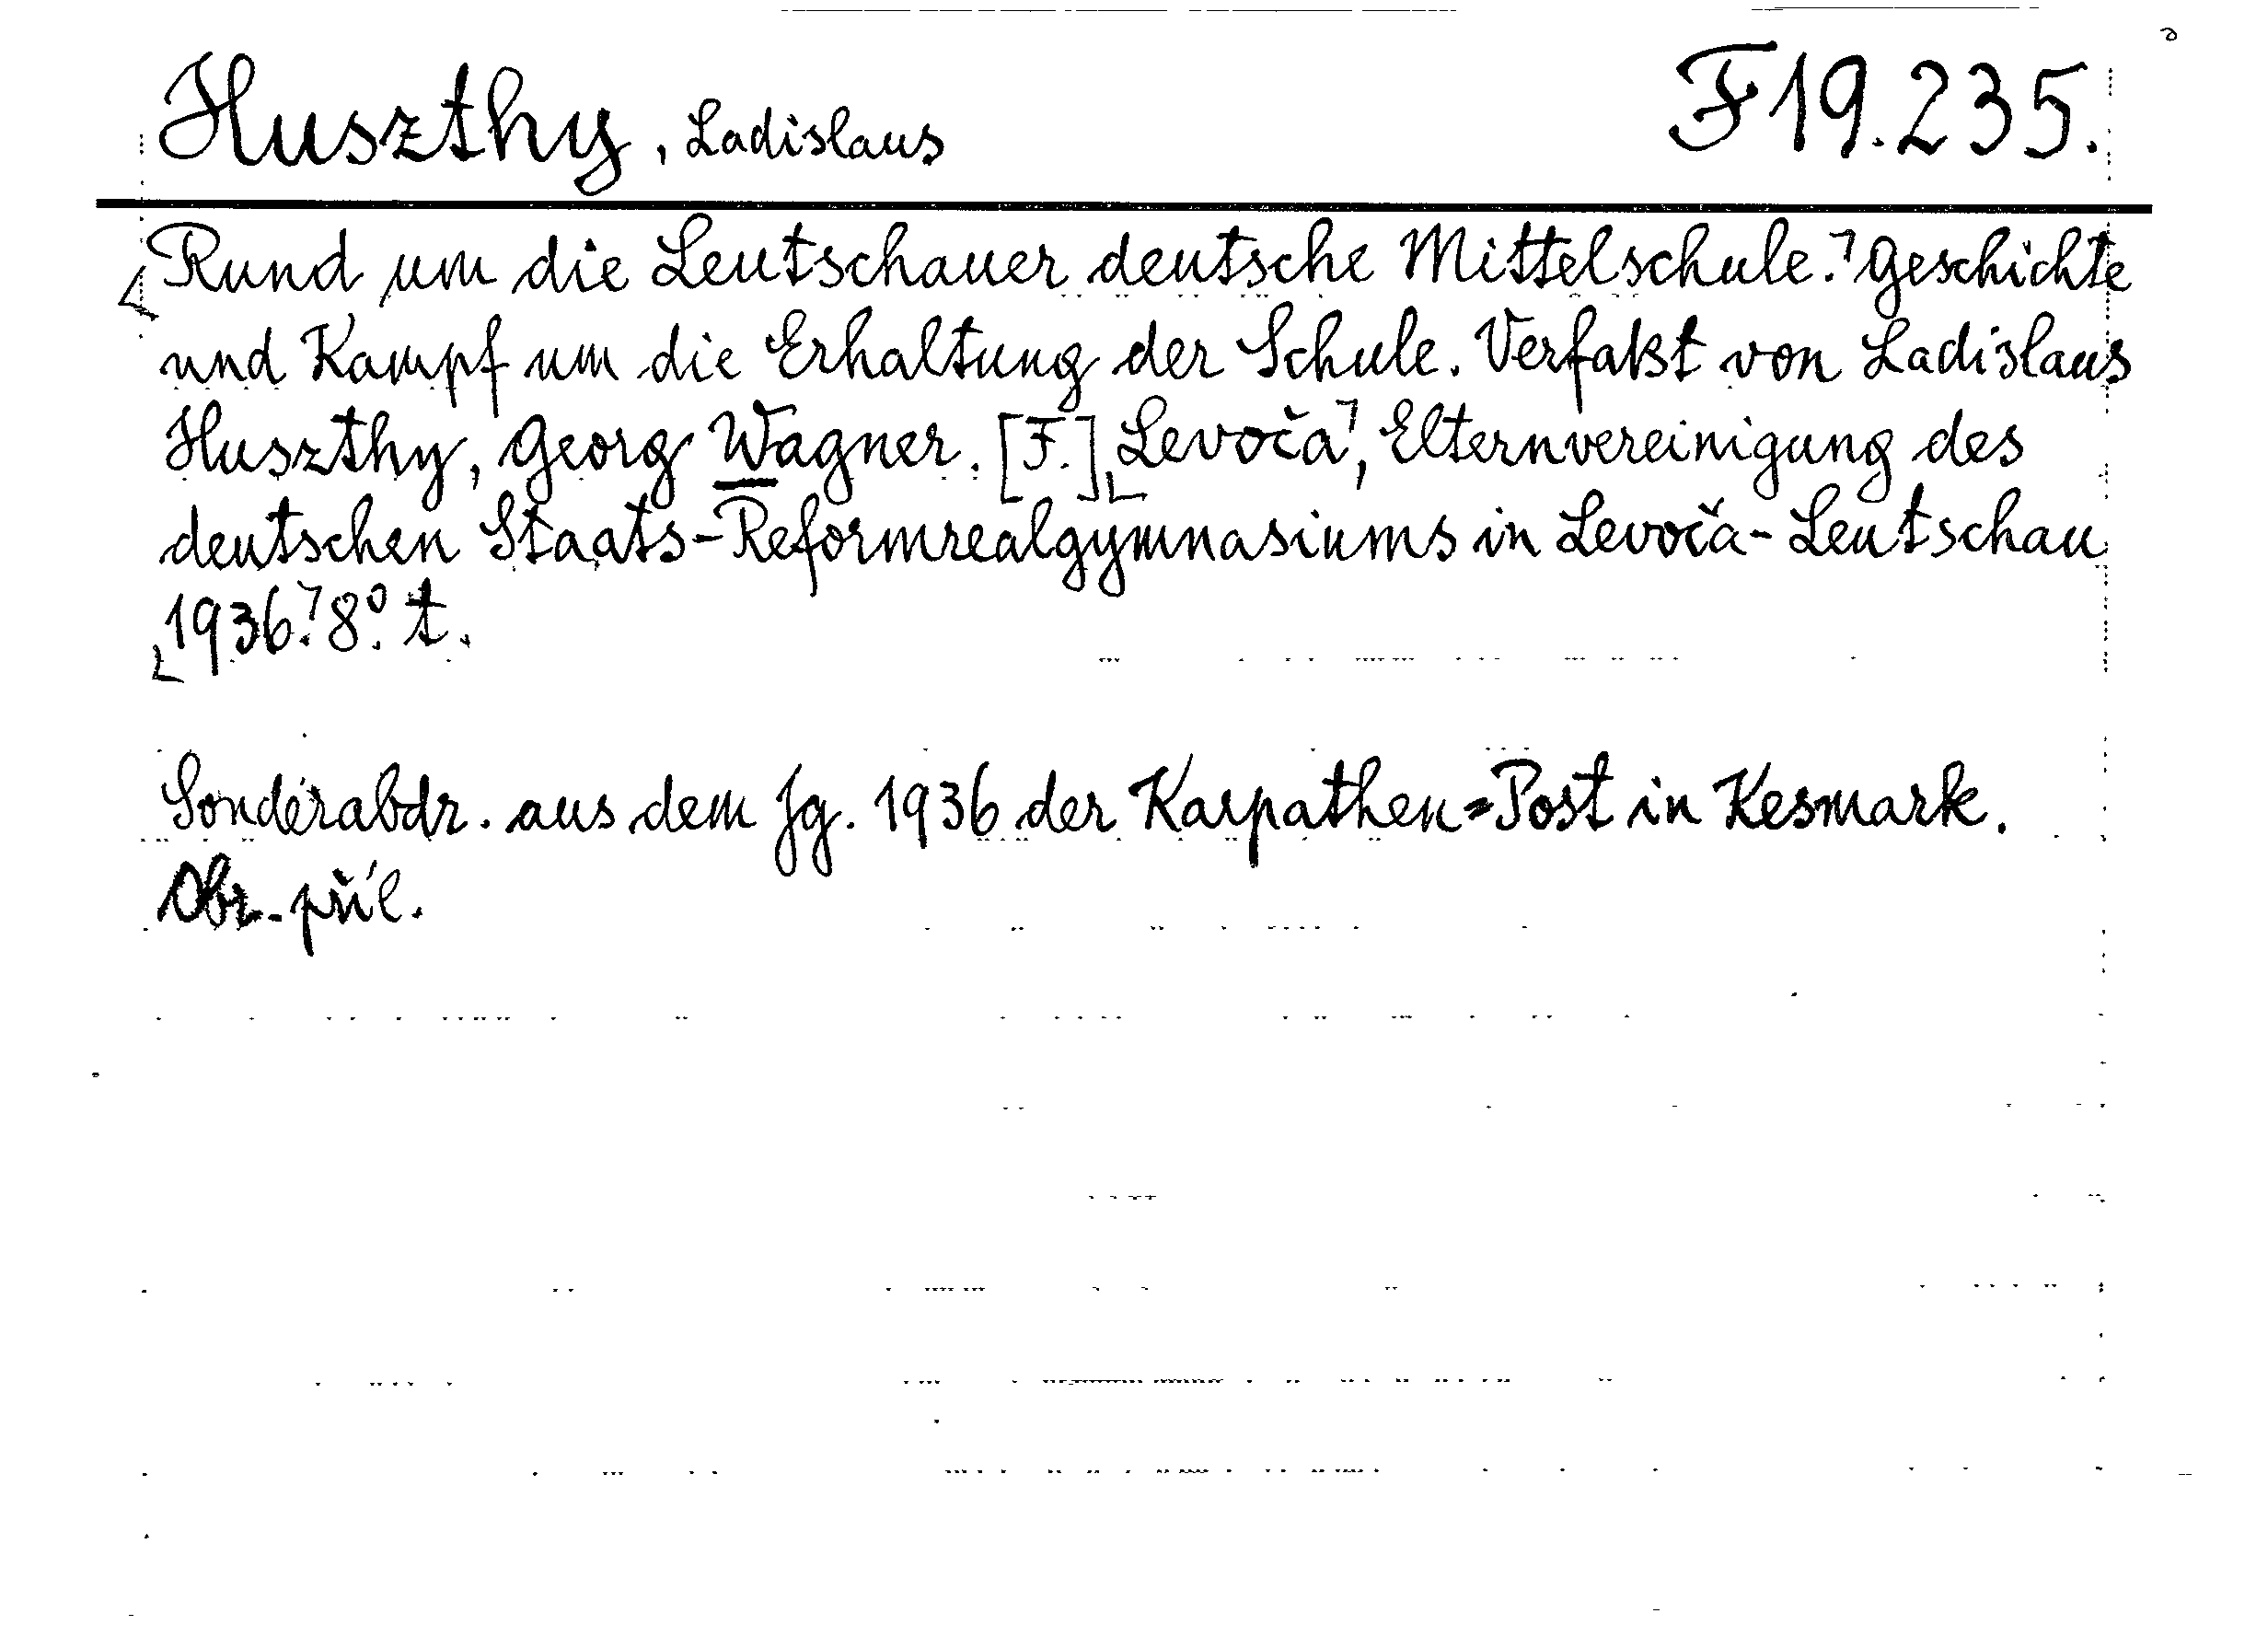 Huszthy, Ladislaus F19.235.
Rund um die Leutschauer deutsche Mittelschule. Geschichte
und Kampf um die Erhaltung der Schule. Verfaßt von Ladislaus
Huszthy, Georg Wagner. [F.] Levoča, Elternvereinigung des
deutschen Staats-Reformrealgymnasiums in Levoča-Leutschau
1936. 8°. t.
Sonderabdr. aus dem Jg. 1936 der Karpathen=Post in Kesmark.
Obr. příl.